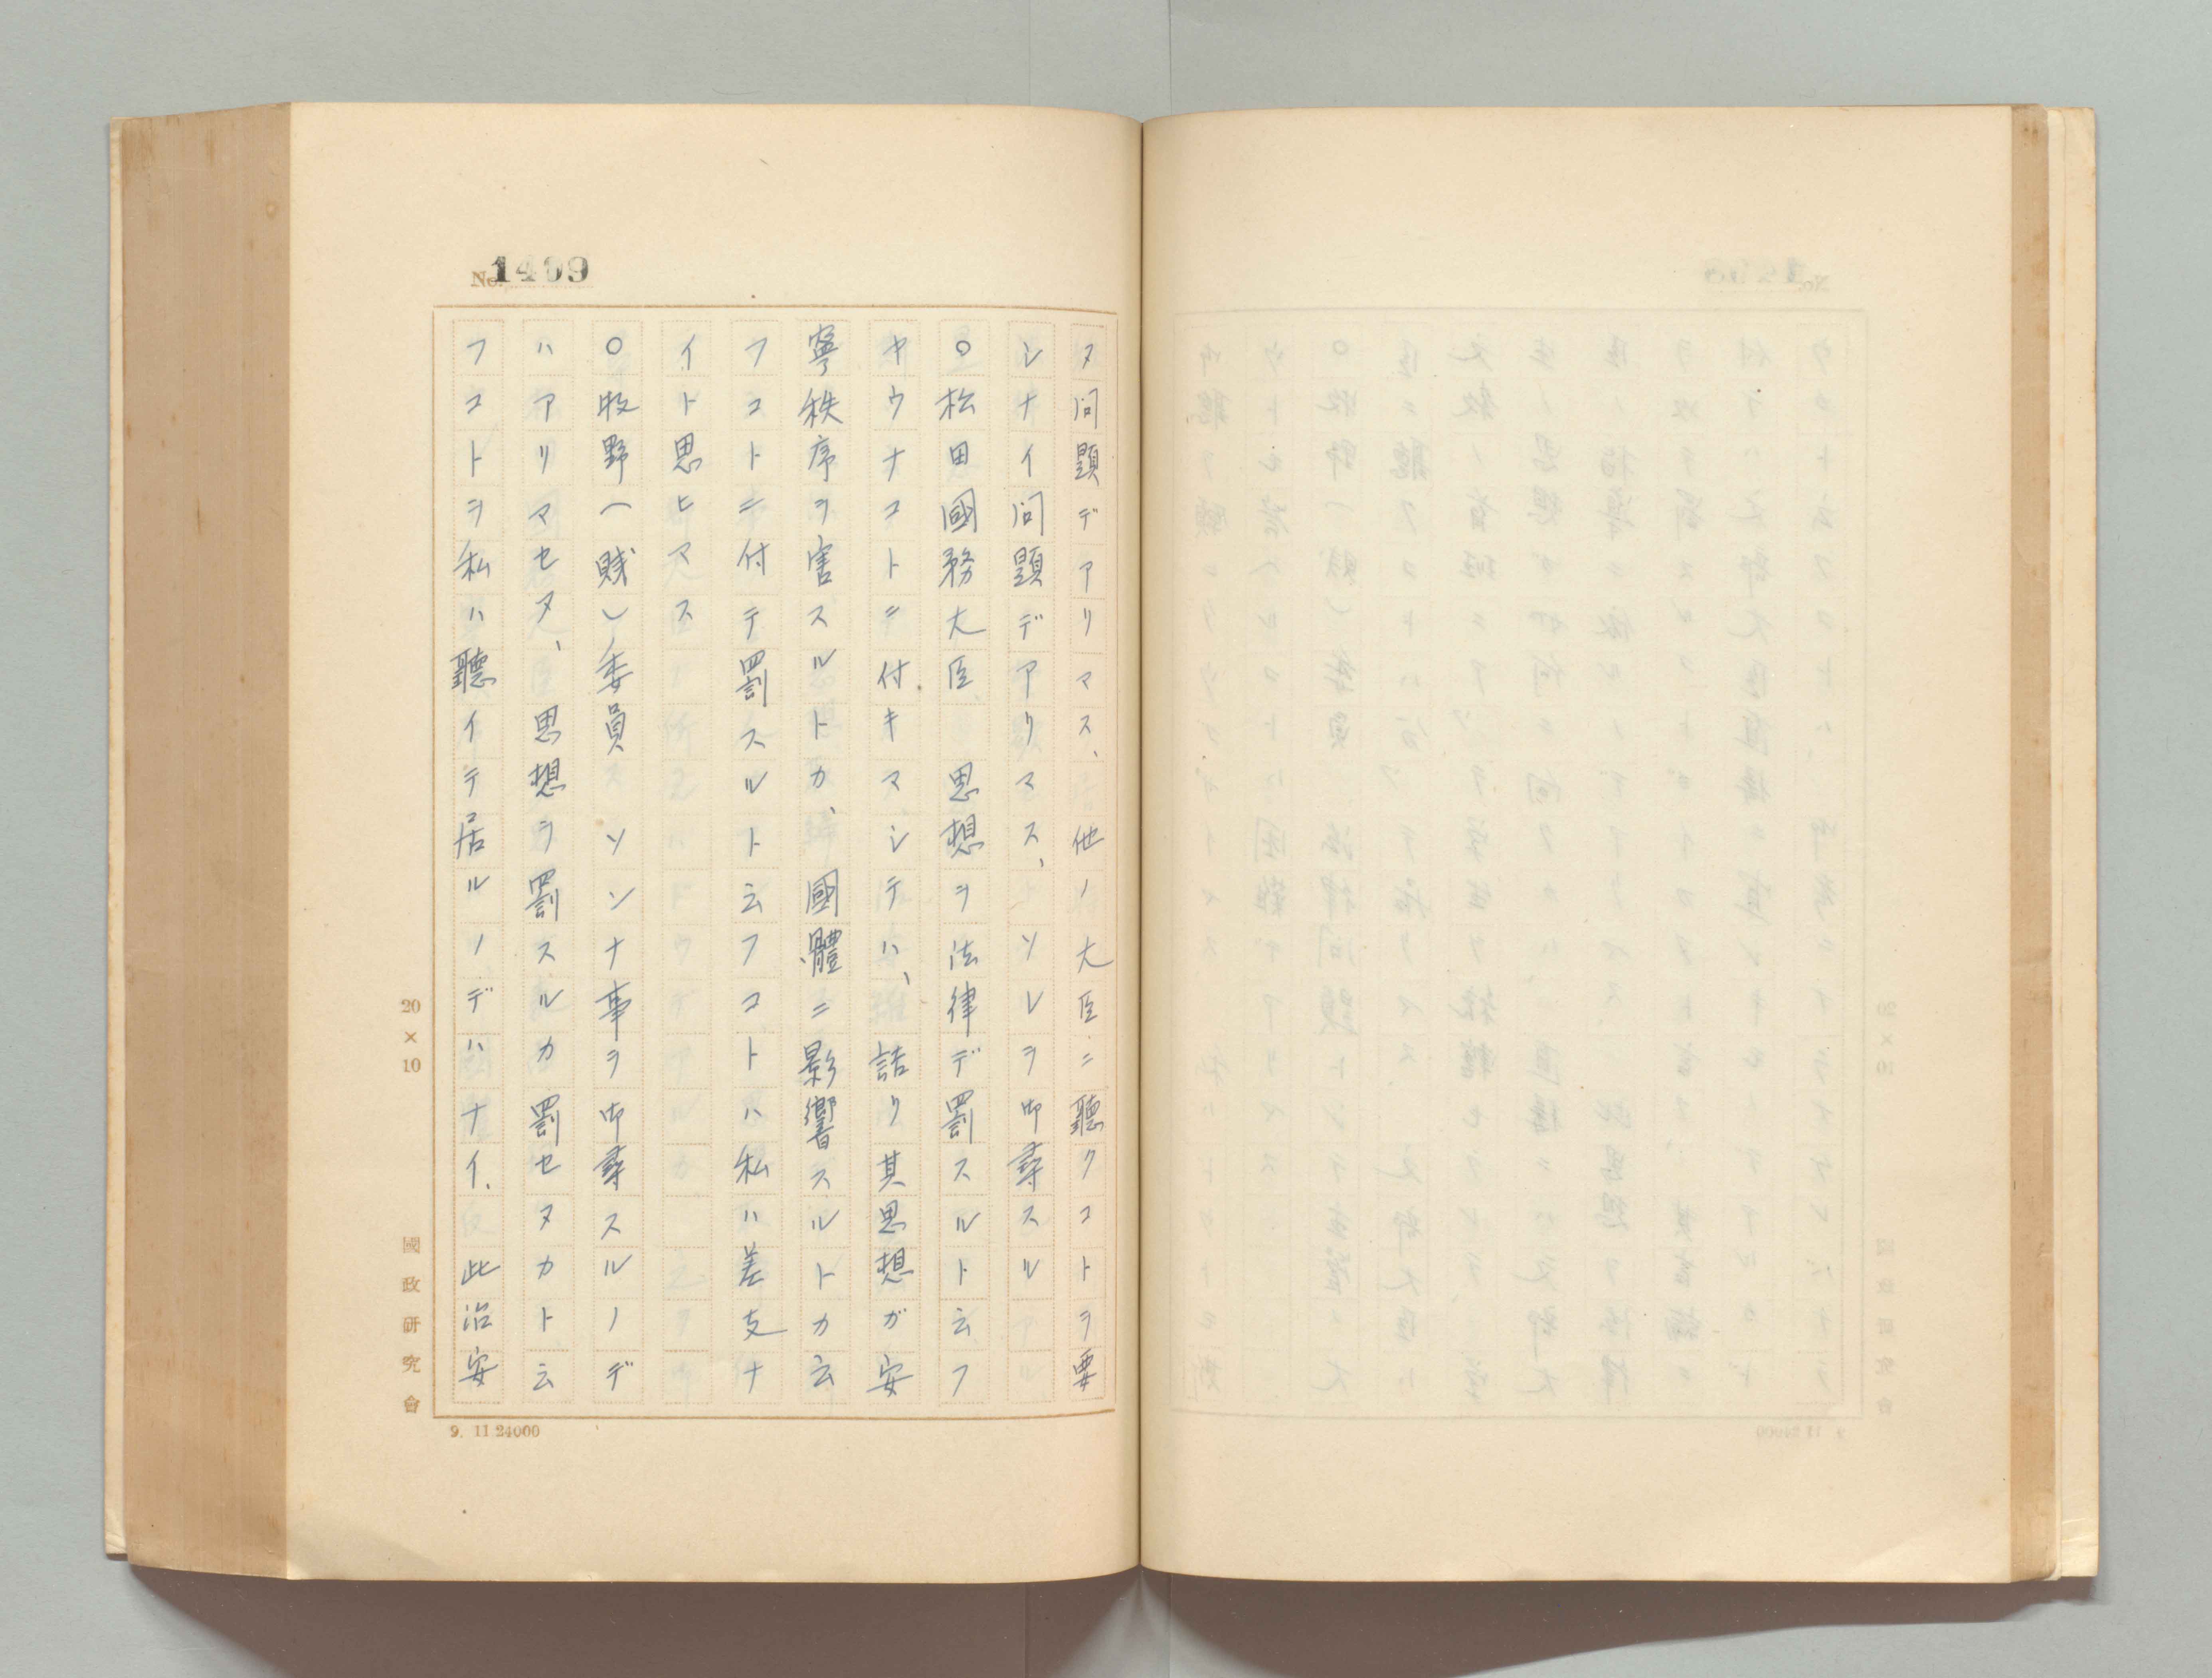 No. 1409
ヌ問題デアリマス、他ノ大臣ニ聽クコトヲ要
シナイ問題デアリマス、ソレヲ御尋スル
○松田國務大臣　思想ヲ法律デ罰スルト云フ
ヤウナコトニ付キマシテハ、詰リ其思想ガ安
寧秩序ヲ害スルトカ、國體ニ影響スルトカ云
フコトニ付テ罰スルト云フコトハ私ハ差支ナ
イト思ヒマス
○牧野(賤)委員　ソンナ事ヲ御尋スルノデ
ハアリマセヌ、思想ヲ罰スルカ罰セヌカト云
フコトヲ私ハ聽イテ居ルノデハナイ、此治安
20×10
國政研究會
9. 11 24000